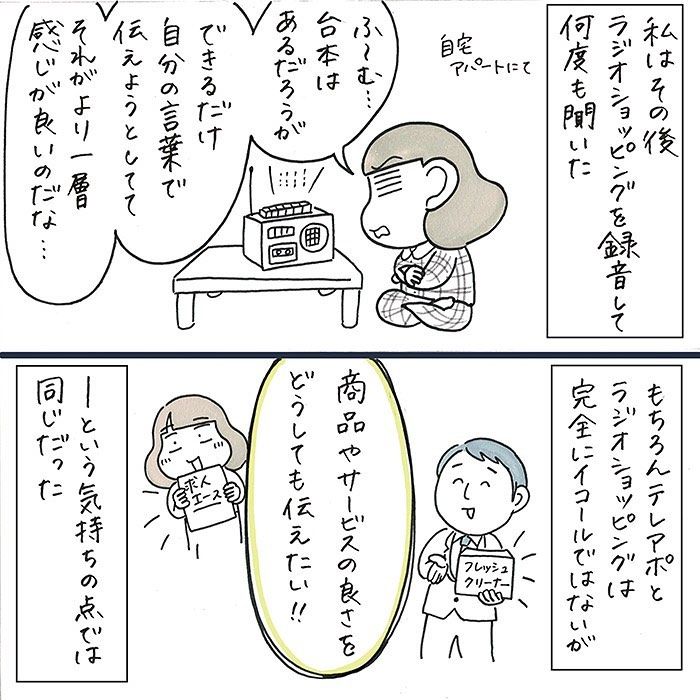 私はその後
ラジオショッピングを録音して
何度も聞いた
自宅
アパートにて
ふ～む…
台本は
あるだろうが
できるだけ
自分の言葉で
伝えようとしてて
それがより一層
感じが良いのだな…
もちろんテレアポと
ラジオショッピングは
完全にイコールではないが
フレッシュ
クリーナー
商品やサービスの良さを
どうしても伝えたい!!
求人
エース
ーという気持ちの点では
同じだった